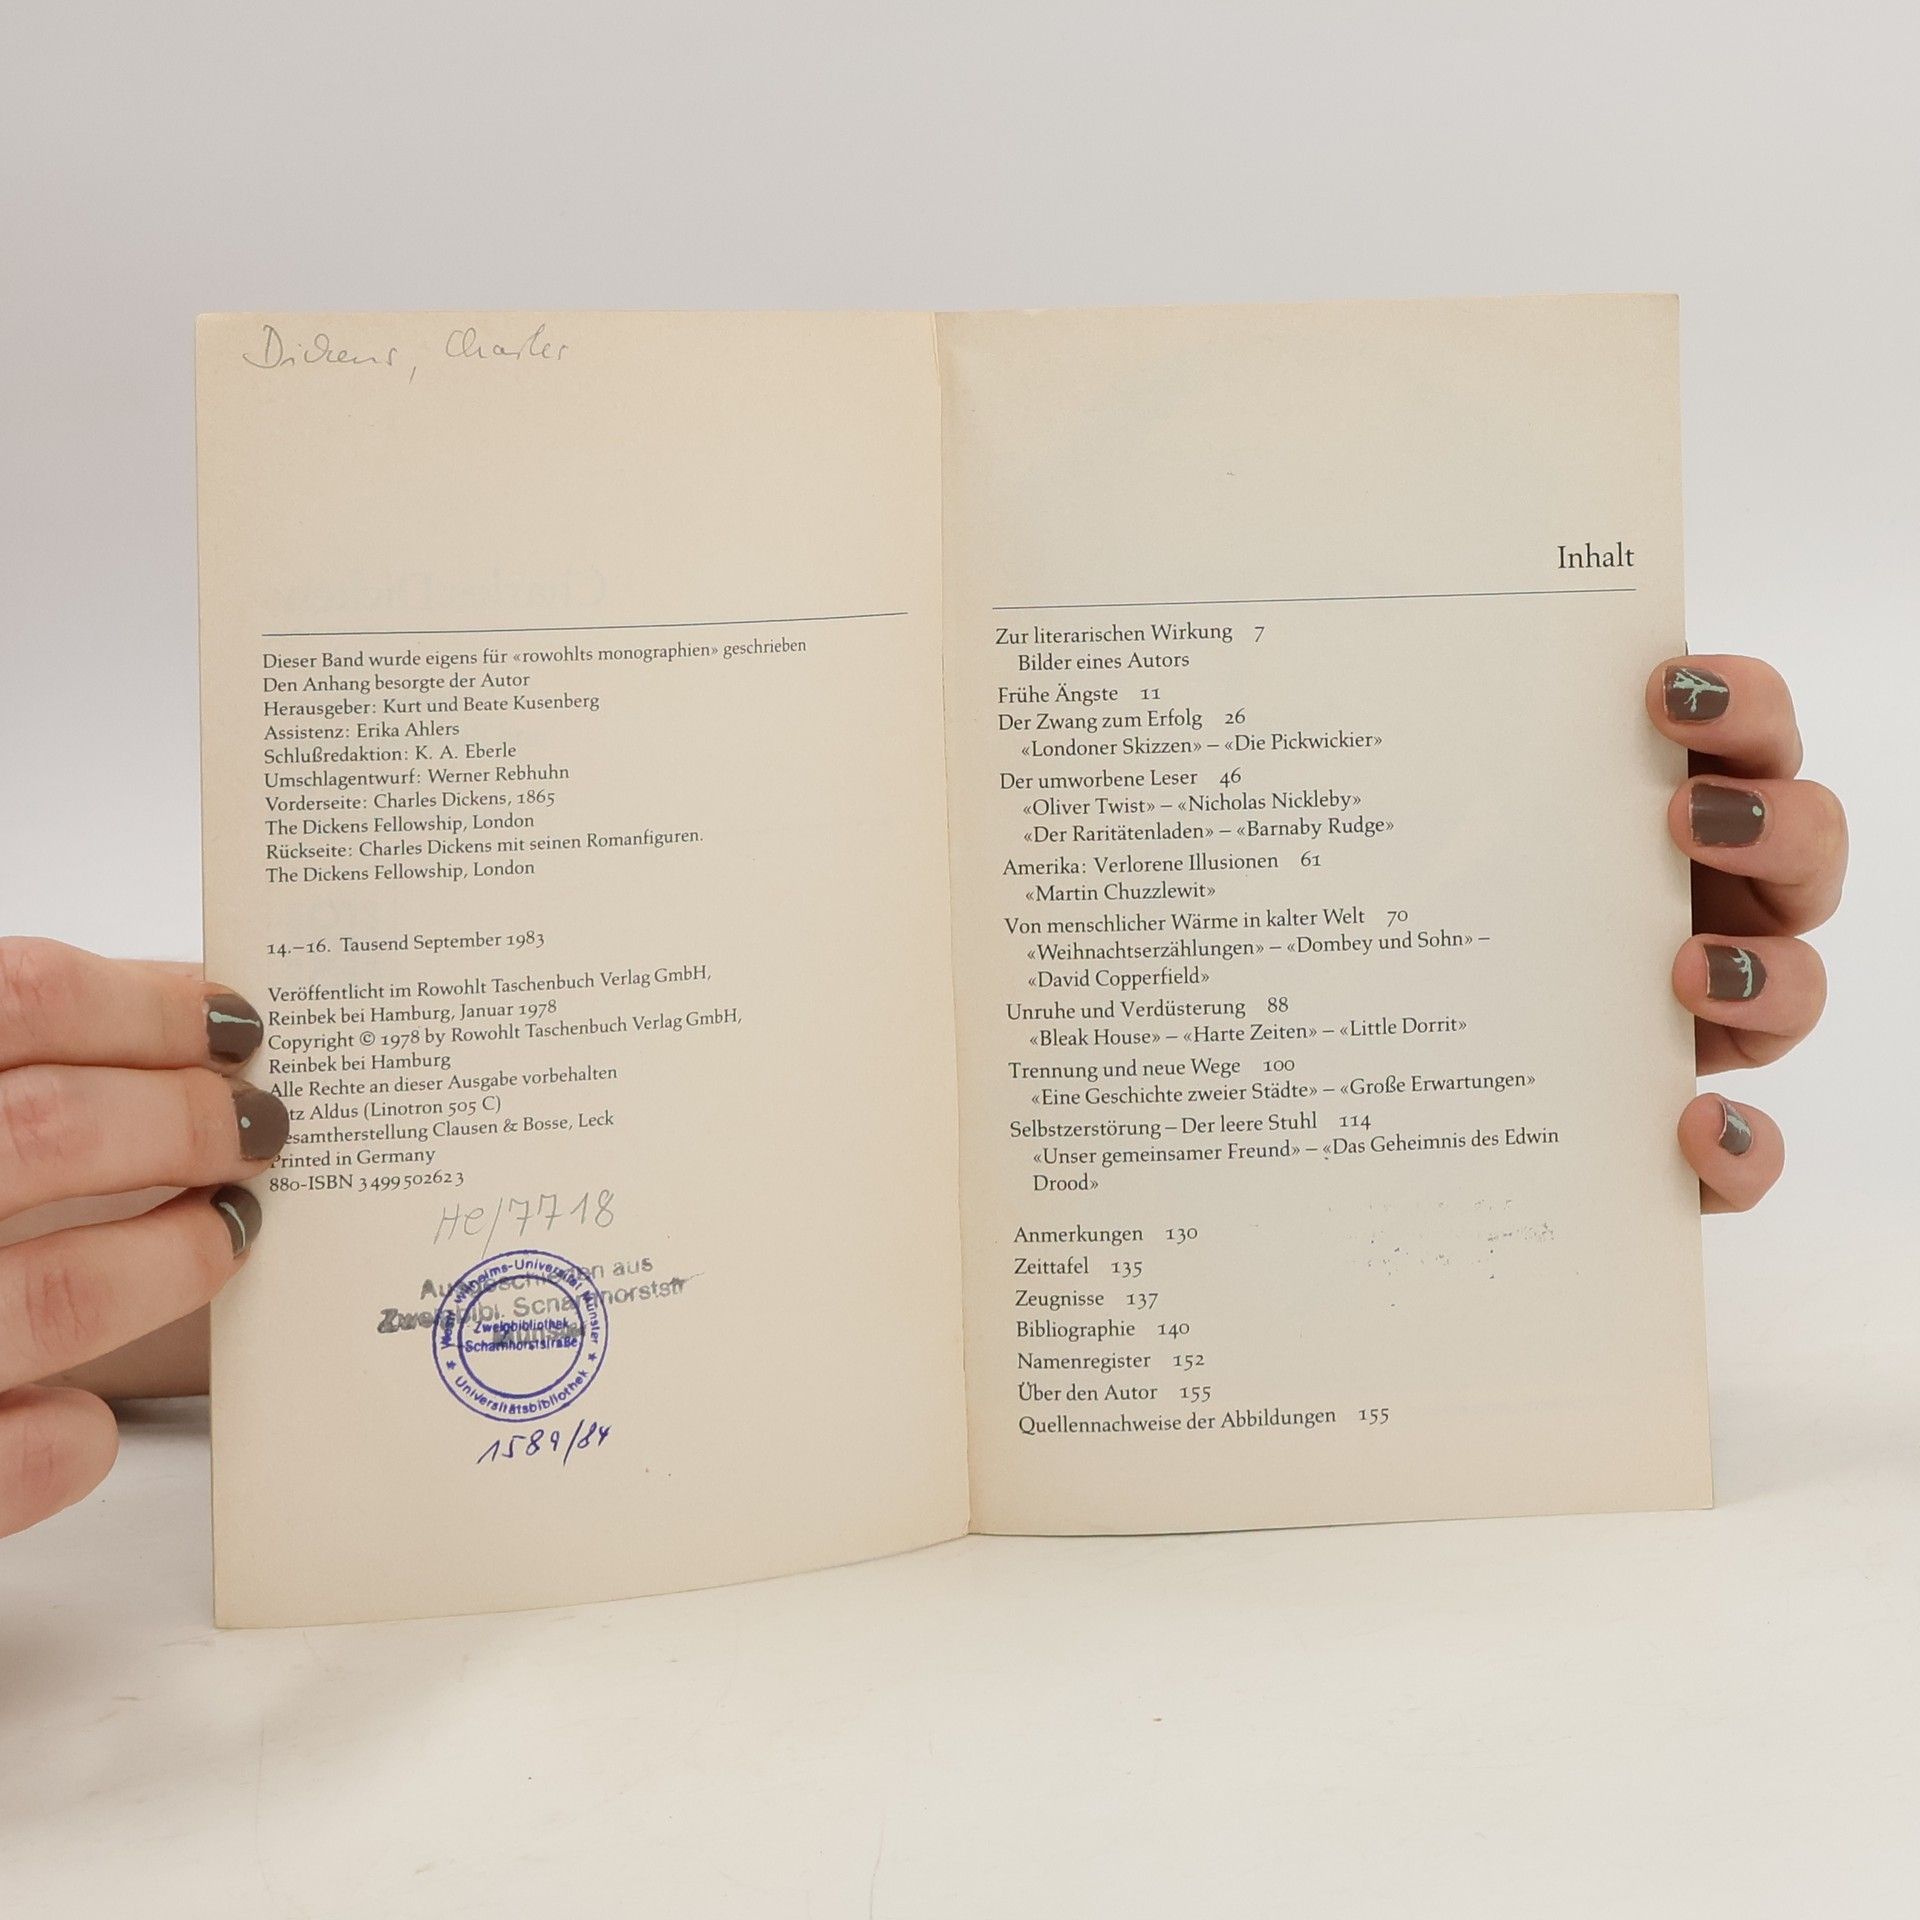 Dickens, Charles
Dieser Band wurde eigens für «rowohlts monographien» geschrieben
Den Anhang besorgte der Autor
Herausgeber: Kurt und Beate Kusenberg
Assistenz: Erika Ahlers
Schlußredaktion: K. A. Eberle
Umschlagentwurf: Werner Rebhuhn
Vorderseite: Charles Dickens, 1865
The Dickens Fellowship, London
Rückseite: Charles Dickens mit seinen Romanfiguren.
The Dickens Fellowship, London
14.–16. Tausend September 1983
Veröffentlicht im Rowohlt Taschenbuch Verlag GmbH,
Reinbek bei Hamburg, Januar 1978
Copyright © 1978 by Rowohlt Taschenbuch Verlag GmbH,
Reinbek bei Hamburg
Alle Rechte an dieser Ausgabe vorbehalten
tz Aldus (Linotron 505 C)
esamtherstellung Clausen & Bosse, Leck
Printed in Germany
880-ISBN 3 499 50262 3
HC/7718
Ausgeschieden aus
Zweigbibl. Scharnhorststr
Münster
Westf. Wilhelms-Universität Münster
Zweigbibliothek
Scharnhorststraße
* Universitätsbibliothek *
1589/84
Inhalt
Zur literarischen Wirkung 7
Bilder eines Autors
Frühe Ängste 11
Der Zwang zum Erfolg 26
«Londoner Skizzen» – «Die Pickwickier»
Der umworbene Leser 46
«Oliver Twist» – «Nicholas Nickleby»
«Der Raritätenladen» – «Barnaby Rudge»
Amerika: Verlorene Illusionen 61
«Martin Chuzzlewit»
Von menschlicher Wärme in kalter Welt 70
«Weihnachtserzählungen» – «Dombey und Sohn» –
«David Copperfield»
Unruhe und Verdüsterung 88
«Bleak House» – «Harte Zeiten» – «Little Dorrit»
Trennung und neue Wege 100
«Eine Geschichte zweier Städte» – «Große Erwartungen»
Selbstzerstörung – Der leere Stuhl 114
«Unser gemeinsamer Freund» – «Das Geheimnis des Edwin
Drood»
Anmerkungen 130
Zeittafel 135
Zeugnisse 137
Bibliographie 140
Namenregister 152
Über den Autor 155
Quellennachweise der Abbildungen 155